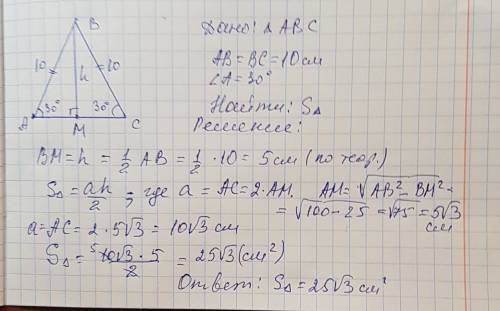 B
10
10
h
30°
30°
A
M
C
Дано: △ABC
AB=BC=10см
∠A=30°
Найти: S△
Решение:
BM=h=1/2 AB=1/2·10=5см (по теор.)
S△=ah/2; где a=AC=2·AM. AM=√(AB²-BM²)=
=√(100-25)=√75=5√3
см
a=AC=2·5√3=10√3 см
S△=(10√3·5)/2 5 =25√3(см²)
Ответ: S△=25√3 см²